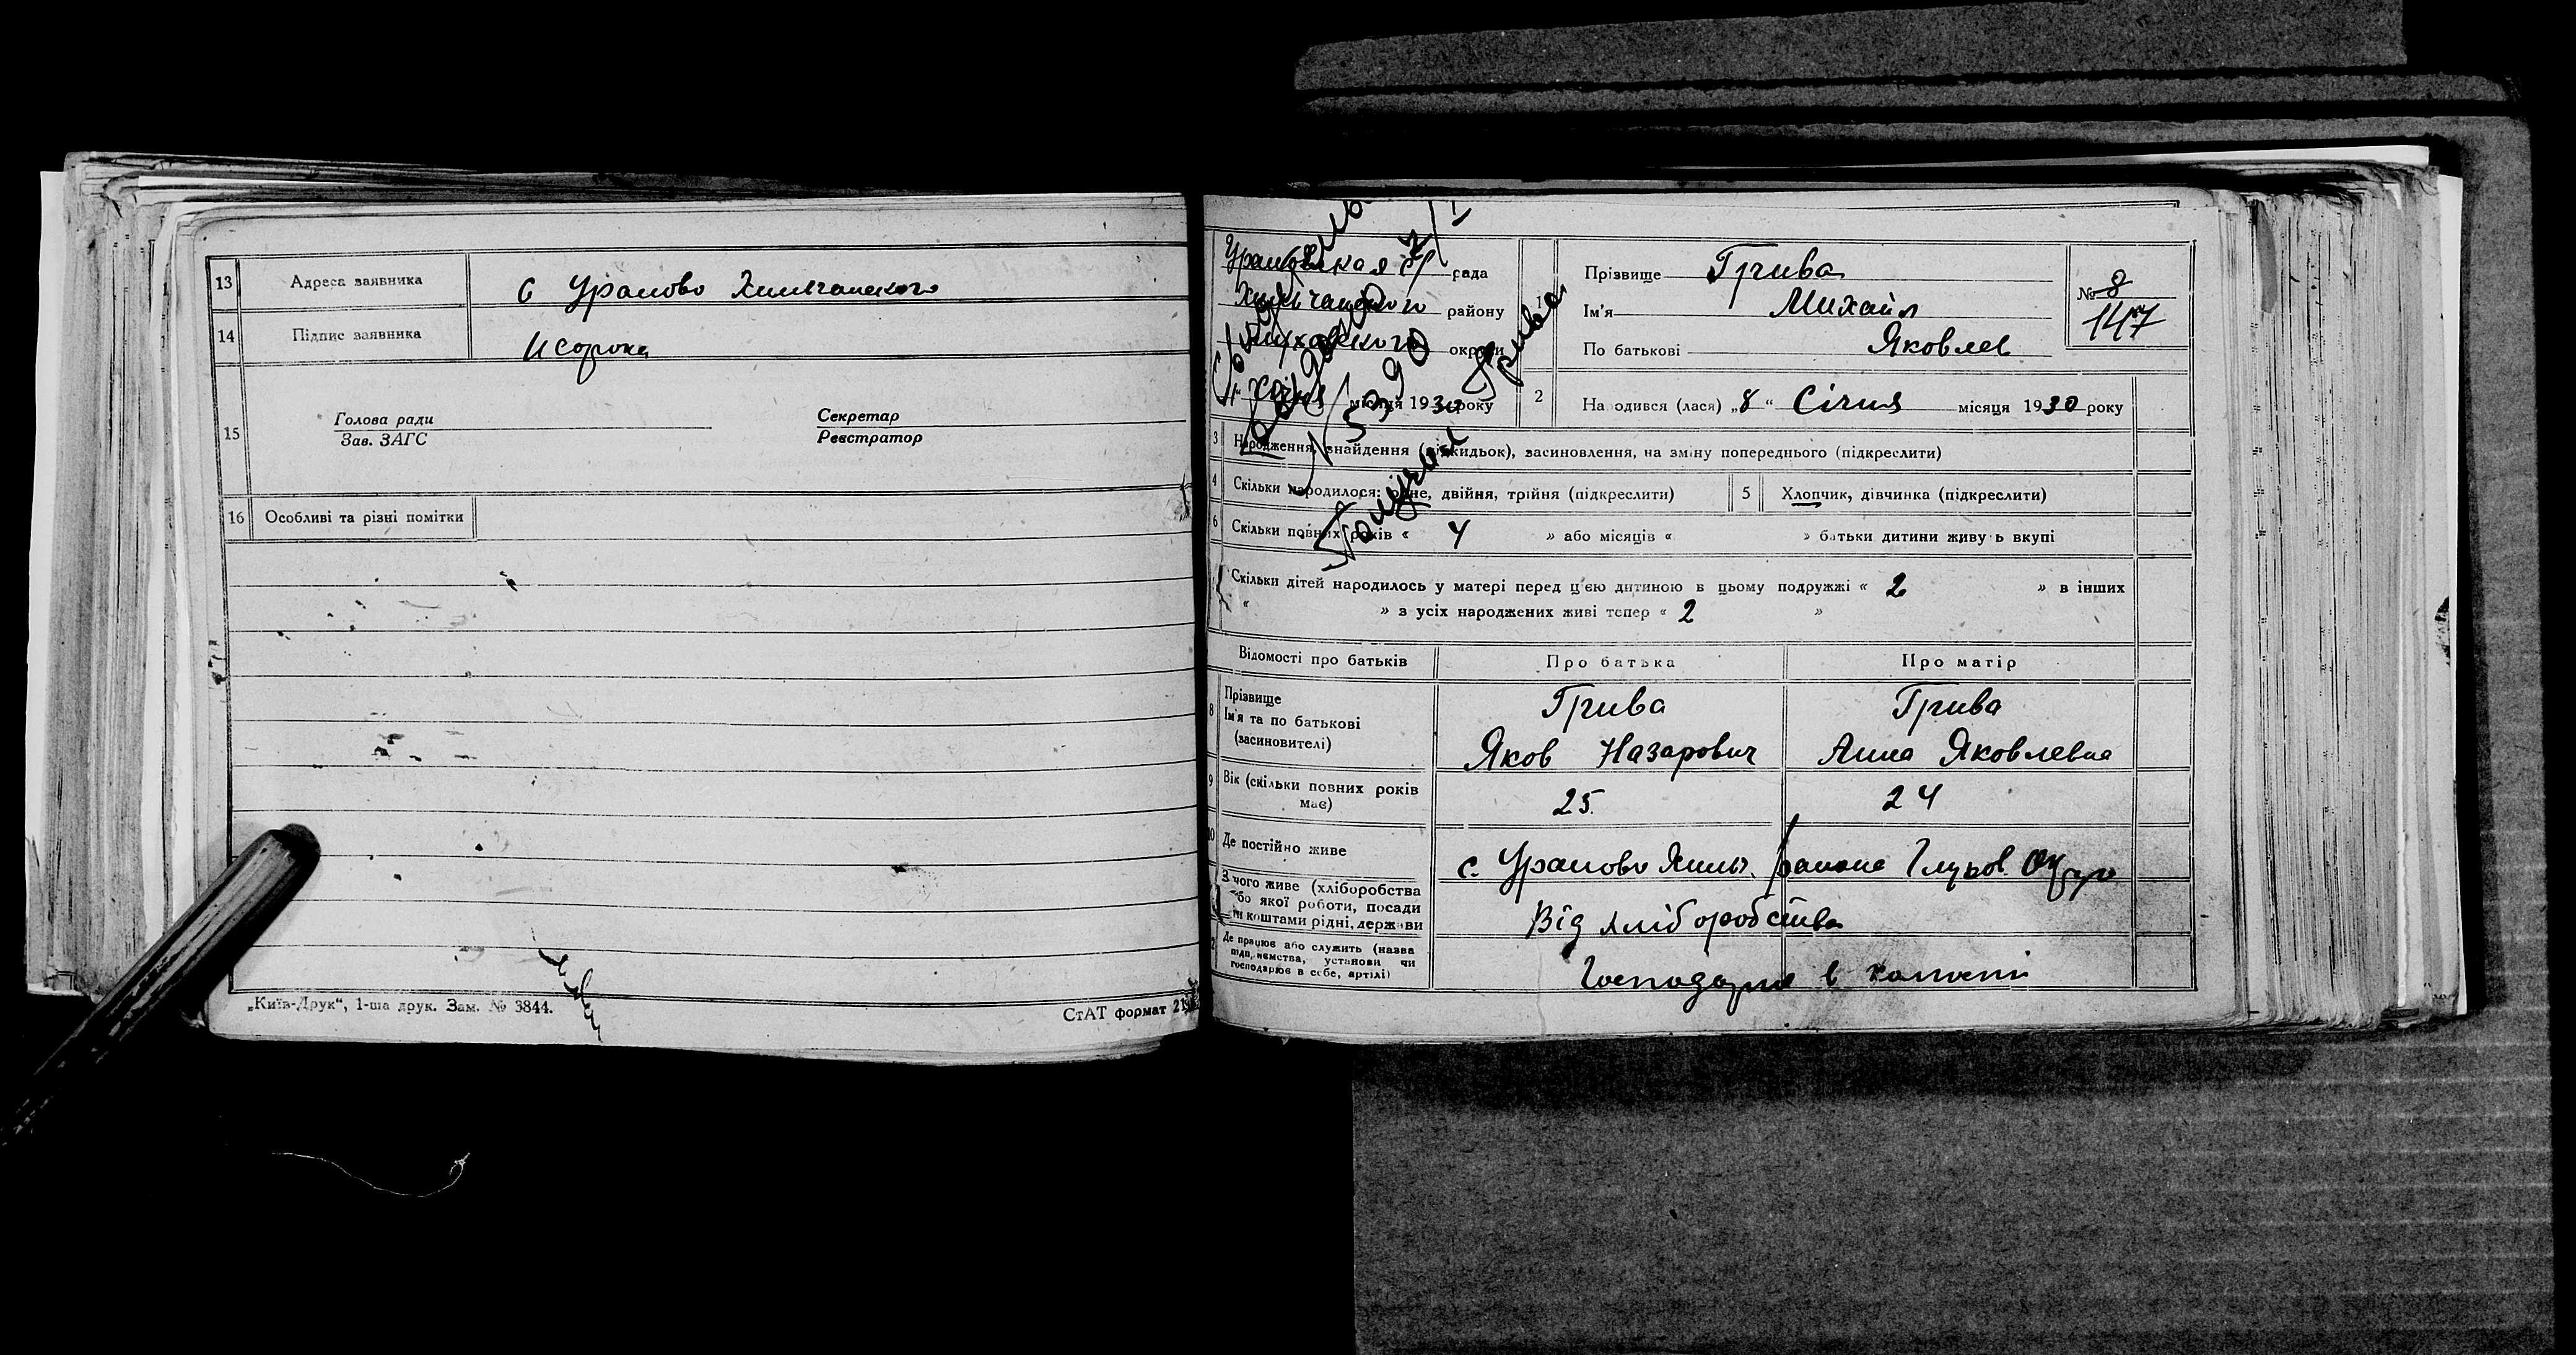 13 Адреса заявника с Уралово Хильчанского
14 Підпис заявника И сорока
15 Голова ради Секретар
Зав. ЗАГС Реєстратор
16 Особливі та різні помітки
„Київ-Друк“, 1-ша друк. Зам. № 3844.
СтАТ формат
Ураловская с/ рада
Хильчанского району
округи
місяця 1930 року
1 Прізвище Грива
Ім'я Михайл
По батькові Яковлев
№ 8
147
2 Народився (лася) „8“ Січня місяця 1930 року
3 Народження, знайдення (підкидьок), засиновлення, на зміну попереднього (підкреслити)
4 Скільки народилося: одне, двійня, трійня (підкреслити) 5 Хлопчик, дівчинка (підкреслити)
6 Скільки повних років « 4 » або місяців « » батьки дитини живуть вкупі
Скільки дітей народилось у матері перед ц'єю дитиною в цьому подружжі « 2 » в інших
« » з усіх народжених живі тепер « 2 »
Відомості про батьків Про батька Про матір
8 Прізвище Грива Грива
Ім'я та по батькові Яков Назарович Анна Яковлевна
(засиновителі)
9 Вік (скільки повних років має) 25 24
10 Де постійно живе с. Уралово Хильч. района Глухов. Округ
З чого живе (хліборобства
або якої роботи, посади
чи коштами рідні, держави Від хліборобства
Де працює або служить (назва
підприємства, установи чи
господарює в себе, артілі) Господарює в
N 5390
Получил Грива